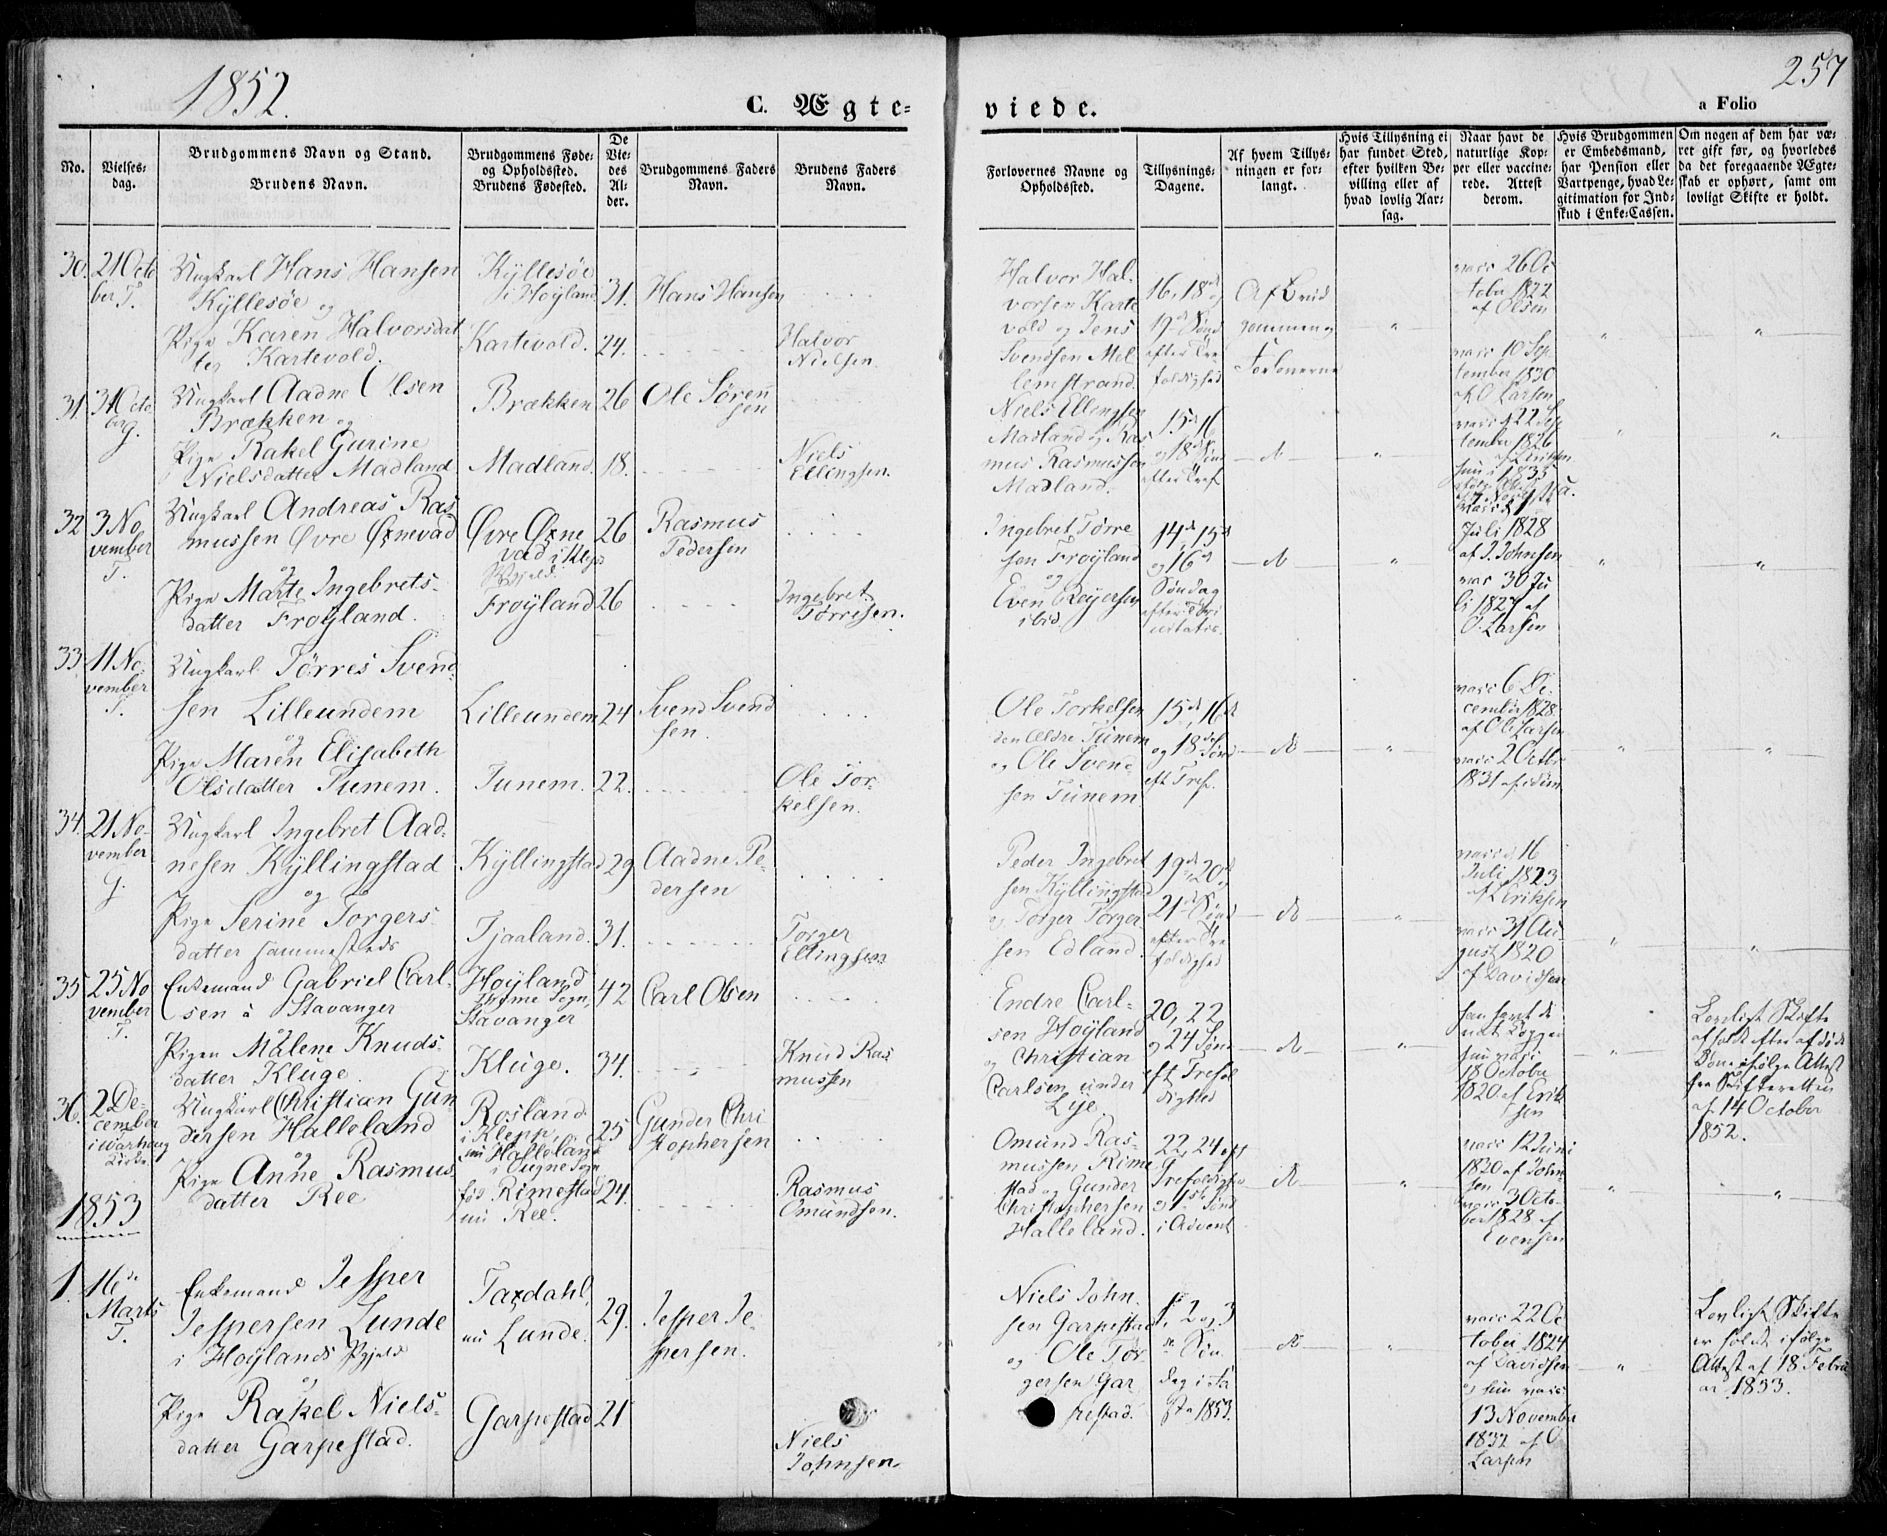 1852.
257
C. Ægte-
viede.
a Folio
No.
Vielses-
dag.
Brudgommens Navn og Stand.
Brudens Navn.
Brudgommens Føde-
og Opholdssted.
Brudens Fødested.
De
Vie-
des
Al-
der.
Brudgommens Faders
Navn.
Brudens Faders
Navn.
Forlovernes Navne og
Opholdssted.
Tillysnings-
Dagene.
Af hvem Tillys-
ningen er for-
langt.
Hvis Tillysning ei
har fundet Sted,
efter hvilken Be-
villing eller af
hvad lovlig Aar-
sag.
Naar havt de
naturlige Kop-
per eller vaccine-
rede. Attest
derom.
Hvis Brudgommen
er Embedsmand,
har Pension eller
Vartpenge, hvad Le-
gitimation for Ind-
skud i Enke-Cassen.
Om nogen af dem har væ-
ret gift før, og hvorledes
da det foregaaende Ægte-
skab er ophørt, samt om
lovligt Skifte er holdt.
30.
21 Octo
ber T.
Ungkarl Hans Hansen
Kyllesøe og
Pige Karen Halvorsdat
ter Kartevold.
Kyllesøe
i Høyland
Kartevold.
31.
24.
Hans Hansen
Halvor
Nielsen.
Halvor Hal-
vorsen Karte
vold og Jens
Svendsen Mel
lemstrand.
16, 18de og
19de Sønd
efter Tre
foldighed
Af Brud
gommen og
Forloverne
vacc 26 Oc
tober 1822
af Olsen
vacc 10 Sep
tember 1830
af O Larsen
31.
31 Octo
ber
G.
Ungkarl Aadne Olsen
Brækken og
Pige Rakel Gurine
Nielsdatter Madland
Brækken
Madland.
26
18.
Ole Søren
sen
Niels
Ellingsen.
Niels Ellingsen
Madland og Ras
mus Rasmussen
Madland.
15de 16
og 18de Sønd
efter Tref
do
vacc 22 Sep
tember 1826
af Eriksen
hun i 1835
32
3 No
vember
T.
Ungkarl Andreas Ras
mussen Øvre Øxnevad
og
Pige Marte Ingebrets-
datter Frøyland.
Øvre Øxne
vad i Klep
Pgjeld.
Frøyland
26
26
Rasmus
Pedersen
Ingebret
Tørresen.
Ingebret Tørre
sen Frøyland
og
Even Reyersen
ibid.
14de, 15de
og 16de
Søndag
efter Tri
nitatis.
do
Juli 1828
af J. Johnsen
vacc 30 Ju
li 1827 af
O. Larsen
33.
11 No
vember
T.
Ungkarl Tørres Svend-
sen Lilleundem
og
Pige Maren Elisabeth
Olsdatter Tunem.
Lilleundem
Tunem.
24
22.
Svend Svend
sen.
Ole Tor-
kelsen.
Ole Torkelsen
den Ældre Tunem
og Ole Sven-
sen Tunem
15de, 16de
og 18de Sønd
eft Tref.
do
vacc 6 De-
cember 1828
af O Larsen
vacc 2 Octbr
1831 af idem
34.
21 No-
vember
G.
Ungkarl Ingebret Aad-
nesen Kyllingstad
og
Pige Serine Torgers-
datter sammesteds
Kyllingstad
Tjaaland.
29
31.
Aadne Pe-
dersen
Torger
Ellingsen
Peder Ingebret
sen Kyllingstad
og Torger Torger
sen Edland.
19de, 20de og
21de Sønd
efter Tre
foldighed
do
vacc 16
Juli 1823
af Eriksen
vacc 31 Au-
gust 1820
af Davidsen
35
25 No
vember
T.
Enkemand Gabriel Carl-
sen á Stavanger
og
Pigen Malene Knuds-
datter Kluge.
Høyland
Stavanger
Kluge.
42
34.
Carl Olsen
Knud Ras
mussen
Endre Carl-
sen Høyland
og Christian
Carlsen under
Lye.
20, 22
og 24 Sønd
eft Trefol
dighed
do
han havt de
nat. Kopper
hun vacc
18 October
1820 af Erik
sen
Lovligt Skifte
afholdt efter afdøde
Kone ifølge Attest
fra Skifteretten
af 14 October
1852.
36.
2 De-
cember
i Warhaug
Kirke
Ungkarl Christian Gun
dersen Halleland
og
Pige Anne Rasmus-
datter Ree
Rosland
i Klepp,
nu Halleland
i Ougne Sogn
fød Rimestad
nu Ree.
25
24.
Gunder Chri
stophersen
Rasmus
Omundsen.
Omund Ras-
mussen Rime
stad og Gunder
Christophersen
Halleland.
22, 24 eft
Trefoldighed
og 1ste Sønd
i Advent
do
vacc 12 Juni
1820 af John
sen
vacc 3 Octo-
ber 1828 af
Evensen
1853
1.
16de
Marts
T.
Enkemand Jesper
Jespersen Lunde
i Høylands Pgjeld
og
Pige Rakel Niels-
datter Garpestad.
Taxdahl
nu Lunde.
Garpestad
29.
21
Jesper Je-
spersen.
Niels
Johnsen.
Niels John-
sen Garpestad
og Ole Tor-
gersen Gar
pestad.
1, 2 og 3
de Søn
dag i Fa
ste 1853.
do
vacc 22 Oc
tober 1824
af Davidsen
og hun vacc
13 November
1832 af O
Larsen
Lovligt Skifte
er holdt ifølge
Attest af 18 Febru
ar 1853.